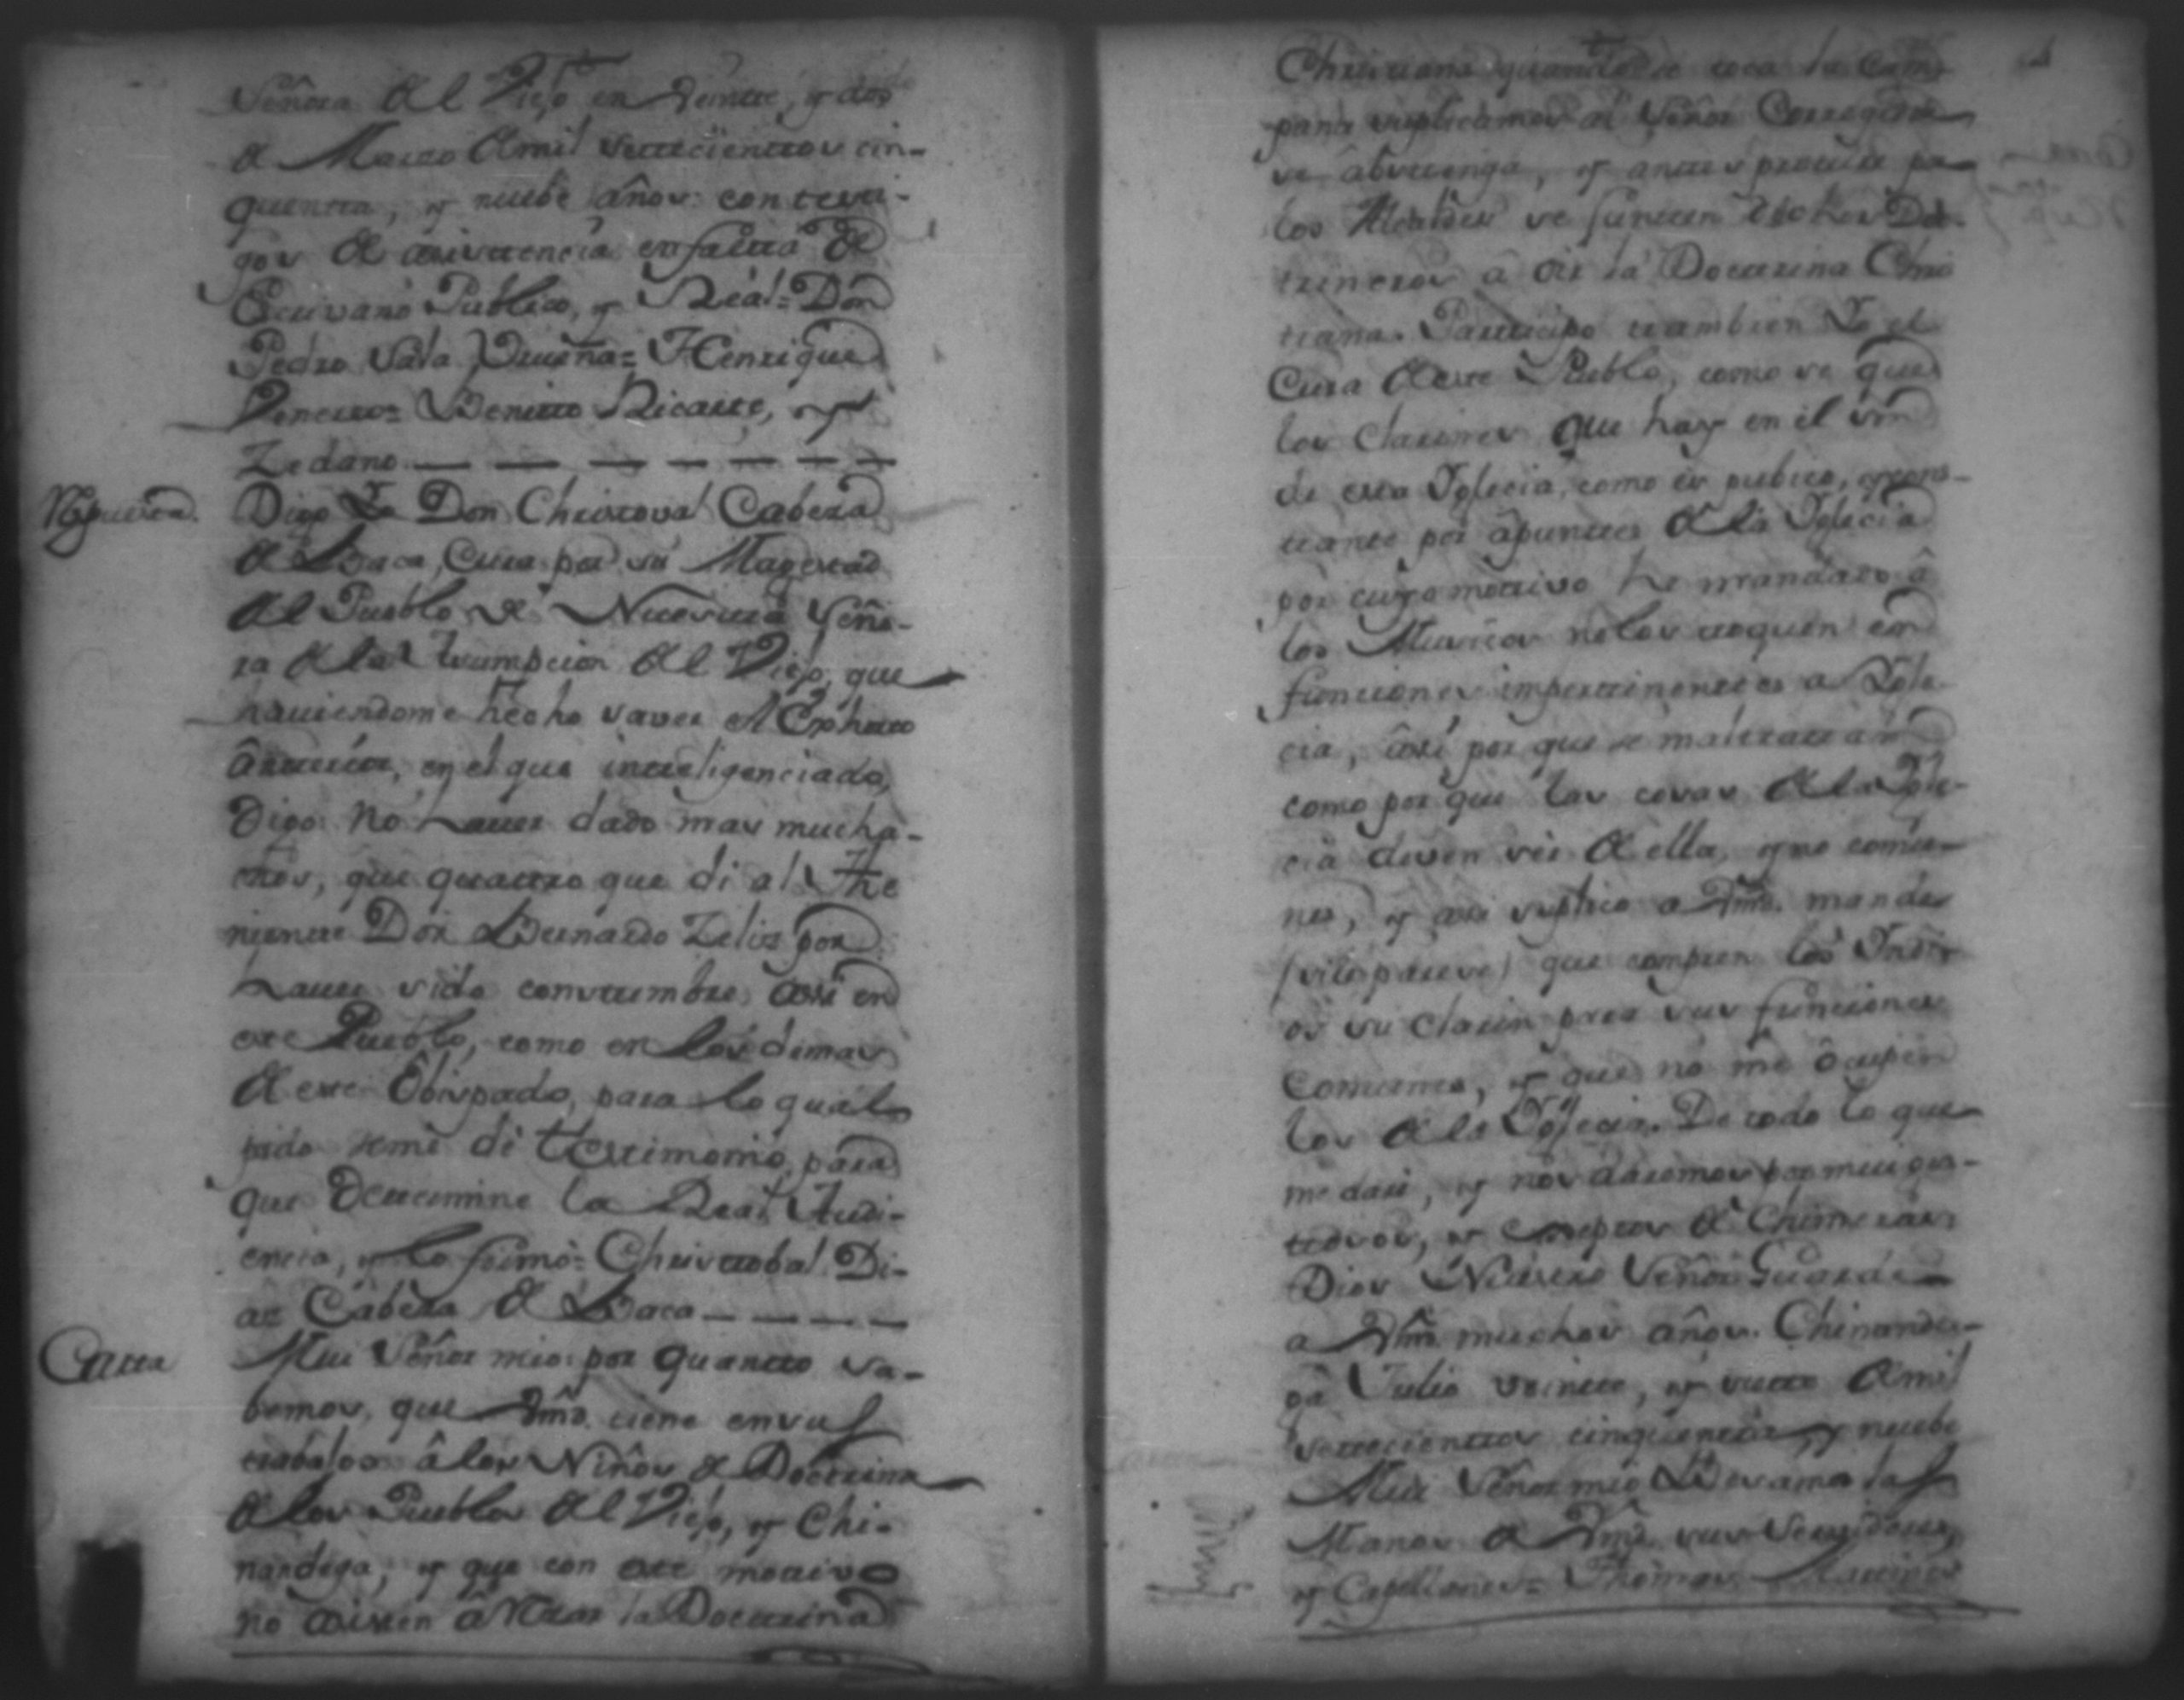 Señora del Viejo en veinte, y dos
de Marzo de mil settecienttos cin-
quenta, y nuebe años: con testi-
gos de asisttencia en faltta de
Escrivano Publico, y Real= Don
Pedro Sala = Henriques
= Benitto Ricarte, y
Zedano
Rpuesta. Digo Yo Don Christoval Cabeza
de Baca, Cura por su Magestad
del Pueblo de Nuestra Seño-
ra de la Assumpcion del Viejo, que
haviendome hecho saver el Exhorto
, en el que intteligenciado,
Digo: No haver dado mas mucha-
chos, que quattro que di al The
niente Don Bernardo Zelis por
haver sido costtumbre, assi en
este Pueblo, como en los demas
de este Obispado, para lo qual
pido se me de testimonio, para
que Determine la Real Audi-
encia, y lo firmò= Christtobal Di-
az Cabeza de Baca
Cartta Mui Señor mio: por quantto sa-
bemos, que Vmd. tiene en sus
trabajos â los Niños de Doctrina
de los Pueblos del Viejo, y Chi-
nandega, y que con este motivo
no asisten â rezar la Doctrina
Christiana quando se toca la Cam-
pana suplicamos al Señor Corregidor
se abstenga, y antes procure por
los Alcaldes se juntten dichos Doc-
trineros â oir la Doctrina Chris
tiana. Participo tambien Yo el
Cura de este Pueblo, como se que
los Clarines que hay en èl son
de esta Yglecia, como es publico, y cons-
tante por apuntes de la Yglecia
por cuyo motivo he mandado â
los Musicos no los toquen en
funciones impertinentes a Ygle-
cia, assi por que se maltratan
como por que las cosas de la Ygle-
cia deven ser de ella, y no comu-
nes, y assi suplico a Vmd. mande
(si le pareze) que compren los Indi-
os su Clarin para sus funciones
Comunes, y que no me ôcupen
los de la Yglecia. De todo lo que
me dare, y nos daremos por mui gus-
tosos,
Dios Nuestro Señor Guarde
a Vmd. muchos años. Chinande-
ga Julio veinte, y siete de mil
settecienttos cinquenta, y nuebe
Mui Señor mio Besamos las
Manos de Vmd. sus Servidores,
y Capellanes= Thomas